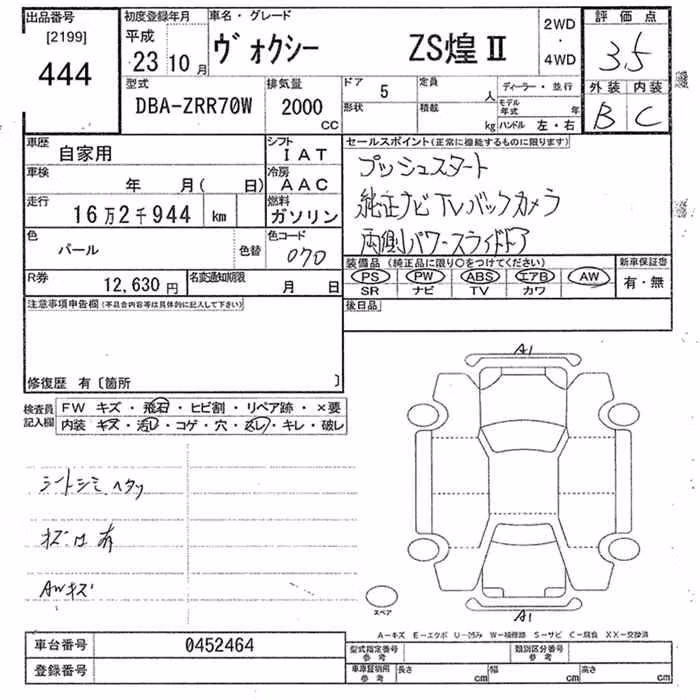 出品番号
[2199]
444
初度登録年月
平成
23 10 月
車名・グレード
ヴォクシー ZS煌Ⅱ
2WD
・
4WD
評価点
3.5
外装 内装
B C
型式
DBA-ZRR70W
排気量
2000
CC
ドア 5
形状
定員 人
積載 kg
ディーラー・並行
モデル年式 年
ハンドル 左・右
車歴
自家用
シフト
IAT
車検
年 月( 日)
冷房
AAC
走行
16万2千944 km
燃料
ガソリン
色
パール
色替
色コード
070
R券
12,630 円
名変通知期限
月 日
セールスポイント(正常に機能するものに限ります)
プッシュスタート
純正ナビTVバックカメラ
両側パワースライドドア
装備品(純正品に限り○をつけてください)
PS PW ABS エアB AW
SR ナビ TV カワ
新車保証書
有・無
注意事項申告欄(本品合内容等は具体的に記載して下さい)
後日品
修復歴 有〔箇所 〕
検査員
記入欄
FW キズ・飛石・ヒビ割・リペア跡・×要
内装 キズ・汚レ・コゲ・穴・スレ・キレ・破レ
シートシミ ヘタリ
キズ凹有
AWキズ
A1
A1
スペア
A－キズ E－エクボ U－凹み W－補修跡 S－サビ C－腐食 XX－交換済
車台番号
0452464
登録番号
型式指定番号
参考
類別区分番号
参考
車庫証明用
参考
長さ cm
幅 cm
高さ cm